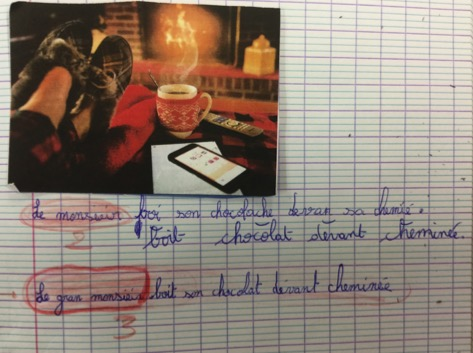 Le monsieur boi son chocolache devran sa chemié.
2 boit chocolat devant cheminée.
Le gran monsieur boit son chocolat devant cheminée
3